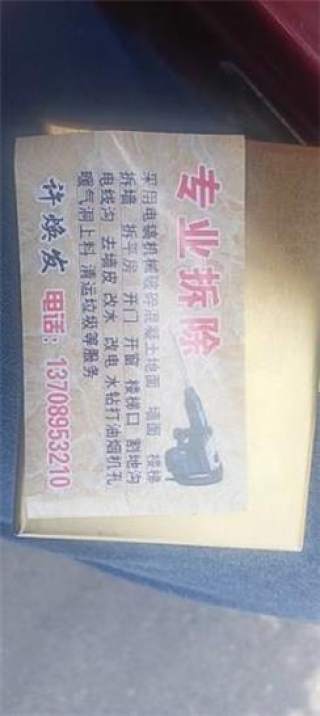 专业拆除
采用电镐机械破碎混凝土地面 墙面 楼梯
拆墙 拆平房 开门 开窗 楼梯口 割地沟
电线沟 去墙皮 改水 改电 水钻打油烟机孔
暖气洞上料 清运垃圾等服务
许焕发 电话：13708953210